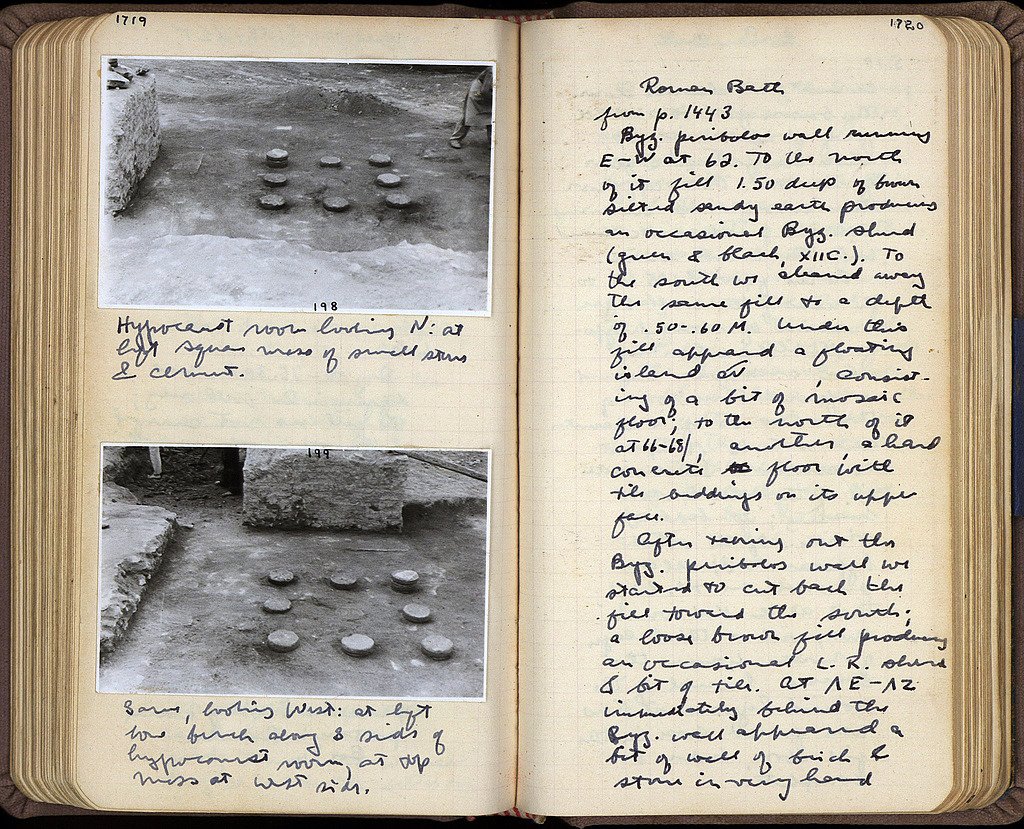 1719
198
Hypocaust room looking N: at
left square mass of small stones
& cement.
199
Same, looking West: at left
low bench along 3 sides of
hypocaust room, at top
mass at west side.
1720
Roman Bath
from p. 1443
Byz. peribolos wall running
E-W at 62. To the north
of it fill 1.50 deep of brown
silted sandy earth producing
an occasional Byz. sherd
(green & black, XII C.). To
the south we cleared away
the same fill to a depth
of .50-.60 M. Under this
fill appeared a floating
island at , consist-
ing of a bit of mosaic
floor; to the north of it
at 66-68/ , another, a hard
concrete floor with
tile beddings on its upper
face.
After taking out the
Byz. peribolos wall we
started to cut back the
fill toward the south;
a loose brown fill producing
an occasional L. R. sherd
& bit of tile. At ΛE-ΛZ
immediately behind the
Byz. wall appeared a
bit of wall of brick &
stone in very hard